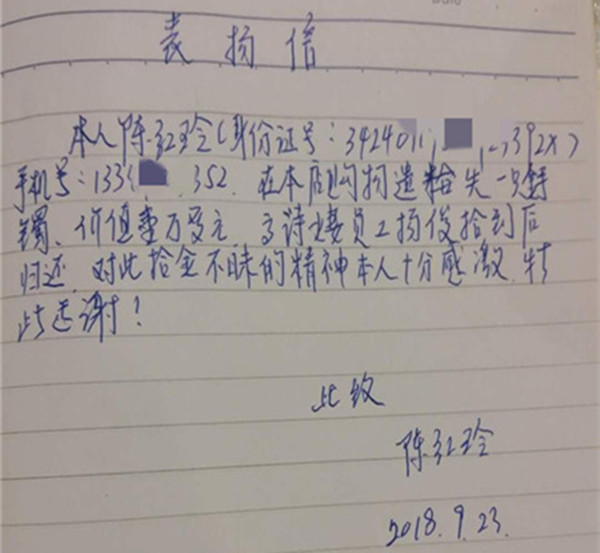 表扬信
本人陈红玲(身份证号:3424011 392X)
手机号:133 352.在本店购物遗失一只手
镯、价值壹万多元、诗婕员工杨俊拾到后
归还.对此拾金不昧的精神本人十分感激.特
此感谢!
此致
陈红玲
2018.9.23.